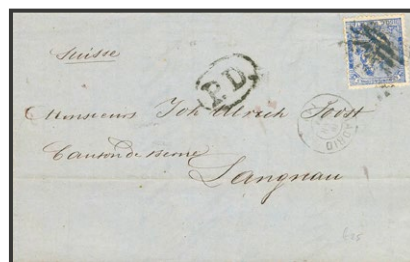 Suisse
P.D.
Monsieur Joh Ulrich Joost
Canton de Berne
Langnau